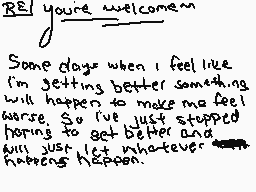 RE/ you're welcome
Some days when i feel like
i'm getting better something
will happen to make me feel
worse. So i've just stopped
hoping to get better and
will just let whatever
happens happen.